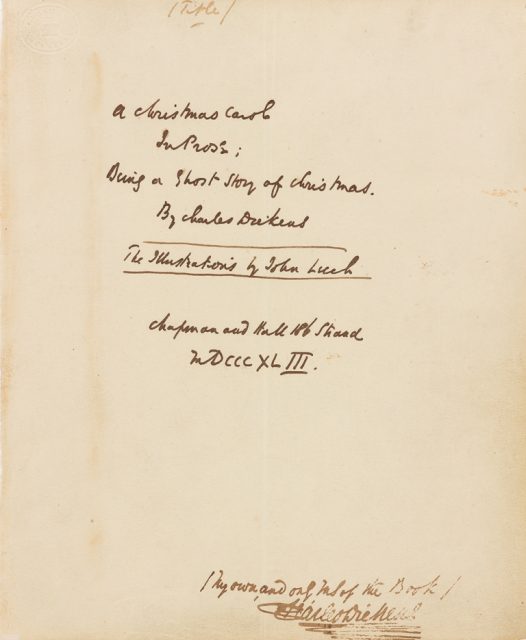 /Title/
A Christmas Carol
In Prose;
Being a Ghost Story of Christmas.
By Charles Dickens
The Illustrations by John Leech
Chapman and Hall 186 Strand
MDCCCXLIII.
/My own, and only MS of the Book/
Charles Dickens